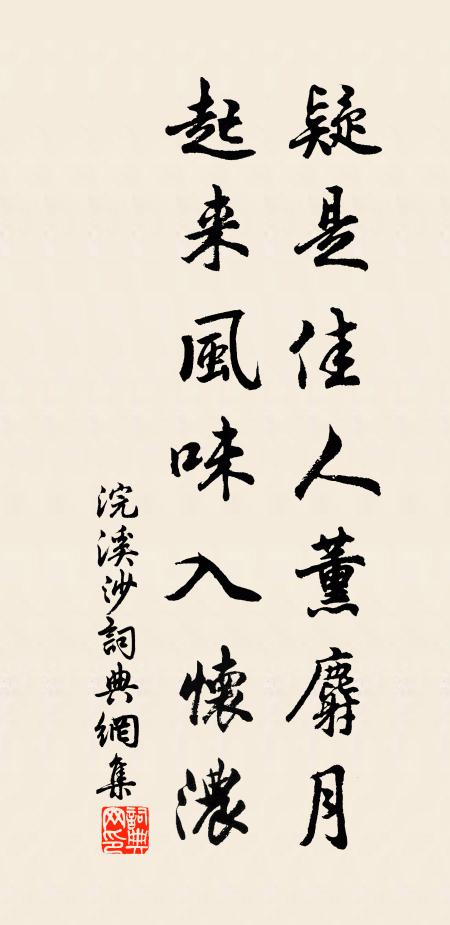 疑是佳人薰麝月
起来風味入懷濃
浣溪沙詞典網集
詞典網印